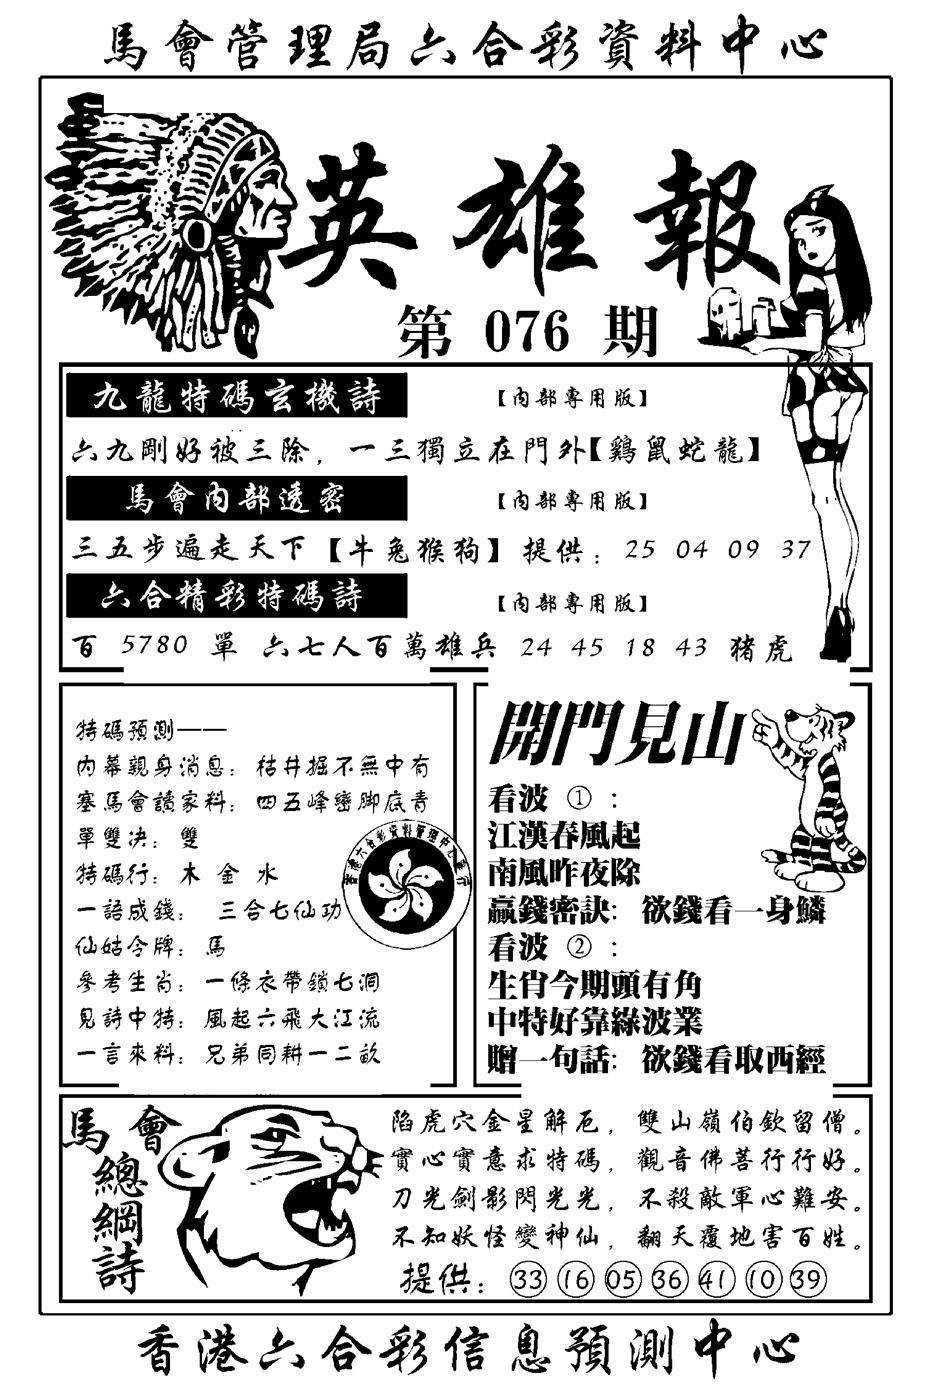 馬會管理局六合彩資料中心
英雄報
第 076 期
九龍特碼玄機詩 【內部專用版】
六九剛好被三除，一三獨立在門外【鷄鼠蛇龍】
馬會內部透密 【內部專用版】
三五步遍走天下【牛兔猴狗】 提供：25 04 09 37
六合精彩特碼詩 【內部專用版】
百 5780 單 六七人百萬雄兵 24 45 18 43 猪虎
特碼預測——
內幕親身消息：枯井掘不無中有
塞馬會讀家料：四五峰巒脚底青
單雙决：雙
特碼行：木 金 水
一語成錢： 三合七仙功
仙姑令牌：馬
參考生肖：一條衣帶鎖七洞
見詩中特：風起六飛大江流
一言來料：兄弟同耕一二畝
香港六合彩資料管理中心發行
開門見山
看波 ①：
江漢春風起
南風昨夜除
贏錢密訣：欲錢看一身鱗
看波 ②：
生肖今期頭有角
中特好靠綠波業
贈一句話：欲錢看取西經
馬會
總綱詩
陷虎穴金星解厄，雙山嶺伯欽留僧。
實心實意求特碼，觀音佛菩行行好。
刀光劍影閃光光，不殺敵軍心難安。
不知妖怪變神仙，翻天覆地害百姓。
提供：33 16 05 36 41 10 39
香港六合彩信息預測中心